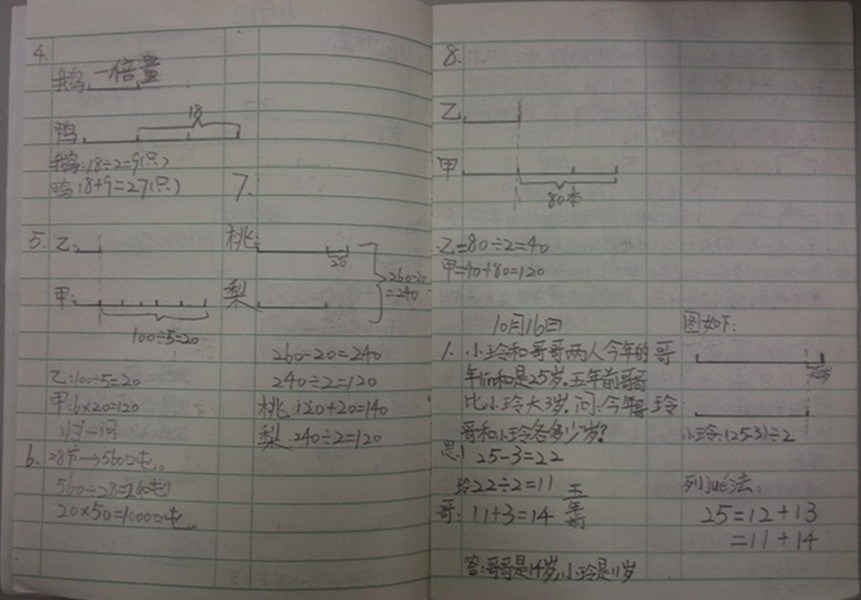 4.
鹅 一倍量
18
鸭
鹅:18÷2=9(只)
鸭 18+9=27(只)
5. 乙:
甲:
100÷5=20
乙:100÷5=20
甲:6×20=120
6. 28节→560吨。
560÷28=
20×50=1000吨。
7.
桃:
20
梨
260-20
=240
260-20=240
240÷2=120
桃:120+20=140
梨:240÷2=120
8.
乙
甲
80本
乙=80÷2=40
甲=40+80=120
10月16日
1. 小玲和哥哥两人今年的
年lin和是25岁.五年前哥哥
比小玲大3岁.问:今年
哥和小玲各多少岁?
思:
25-3=22
玲22÷2=11
哥:11+3=14
五年前
答:哥哥是14岁,小玲是11岁
图如下:
哥
玲
小玲:(25-3)÷2
列jué法:
25=12+13
=11+14